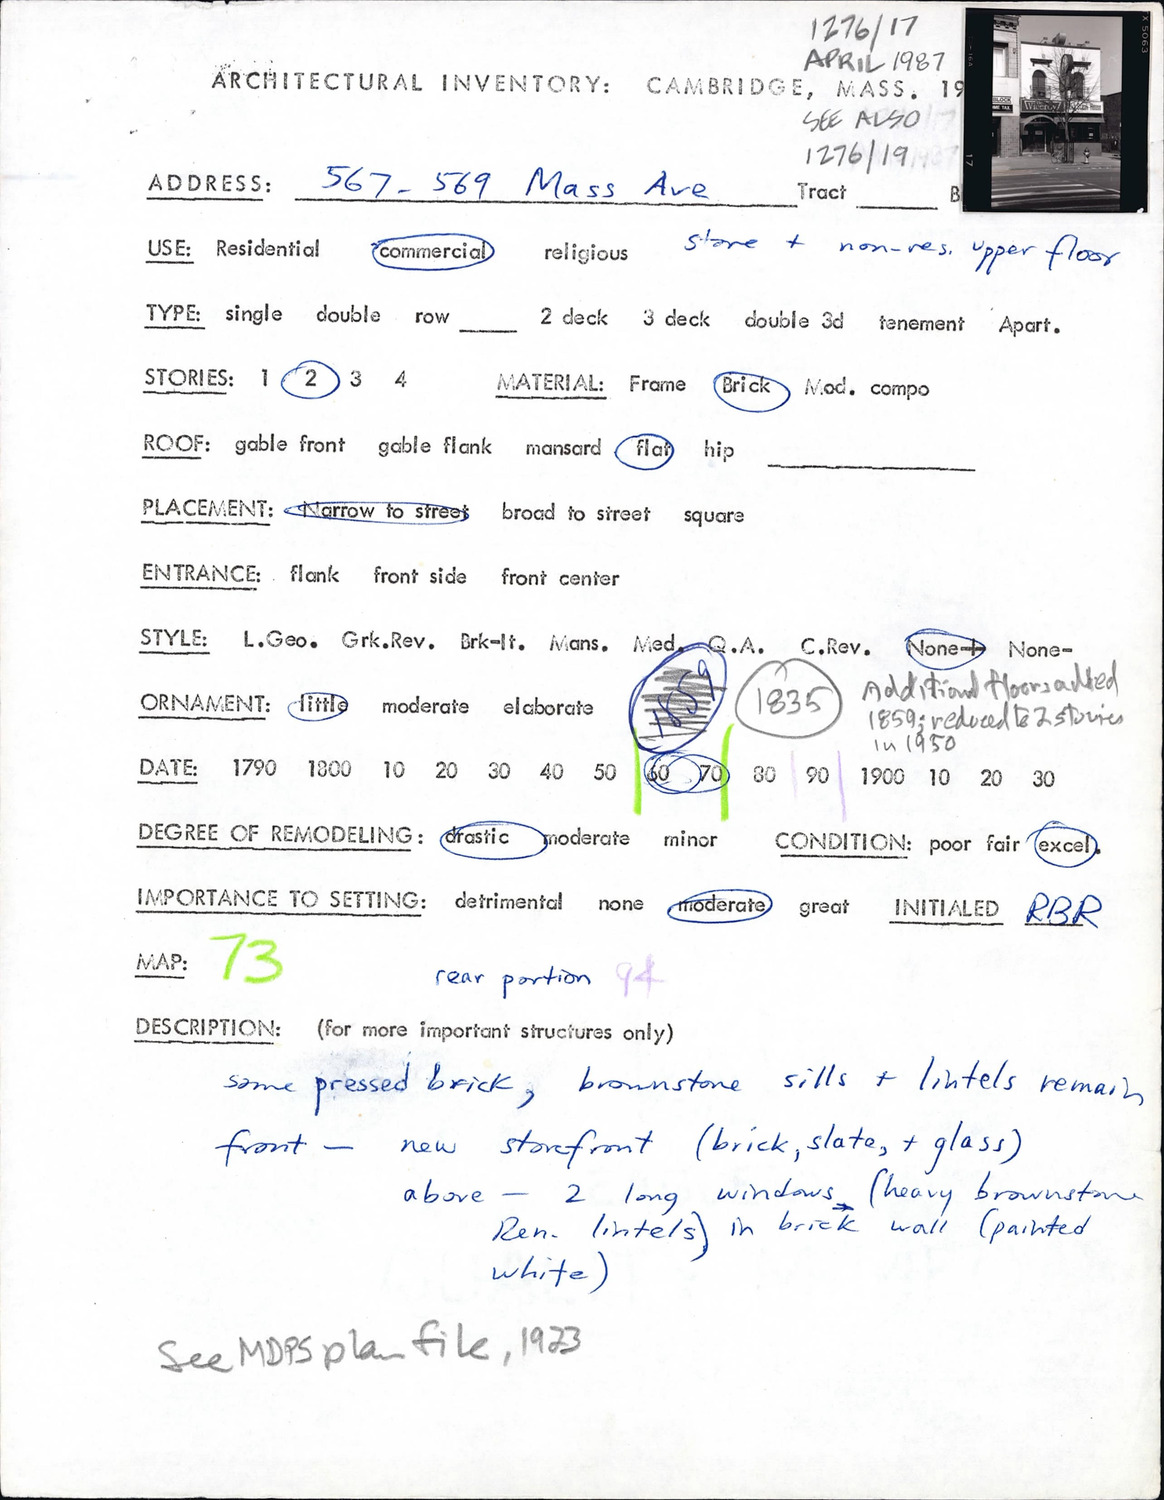 1276/17
APRIL 1987
ARCHITECTURAL INVENTORY: CAMBRIDGE, MASS. 19
SEE ALSO
1276/19
X 5063
17
ADDRESS: 567-569 Mass Ave Tract B
USE: Residential commercial religious store + non-res. upper floor
TYPE: single double row 2 deck 3 deck double 3d tenement Apart.
STORIES: 1 2 3 4 MATERIAL: Frame Brick Mod. compo
ROOF: gable front gable flank mansard flat hip
PLACEMENT: Narrow to street broad to street square
ENTRANCE: flank front side front center
STYLE: L.Geo. Grk.Rev. Brk-It. Mans. Med. Q.A. C.Rev. None+ None-
ORNAMENT: little moderate elaborate 1859 1835 Additional floors added
1859; reduced to 2 stories
in 1950
DATE: 1790 1800 10 20 30 40 50 60 70 80 90 1900 10 20 30
DEGREE OF REMODELING: drastic moderate minor CONDITION: poor fair excel.
IMPORTANCE TO SETTING: detrimental none moderate great INITIALED RBR
MAP: 73 rear portion 94
DESCRIPTION: (for more important structures only)
some pressed brick, brownstone sills + lintels remain
front — new storefront (brick, slate, + glass)
above — 2 long windows (heavy brownstone
Ren. lintels) in brick wall (painted
white)
See MDPS plan file, 1923